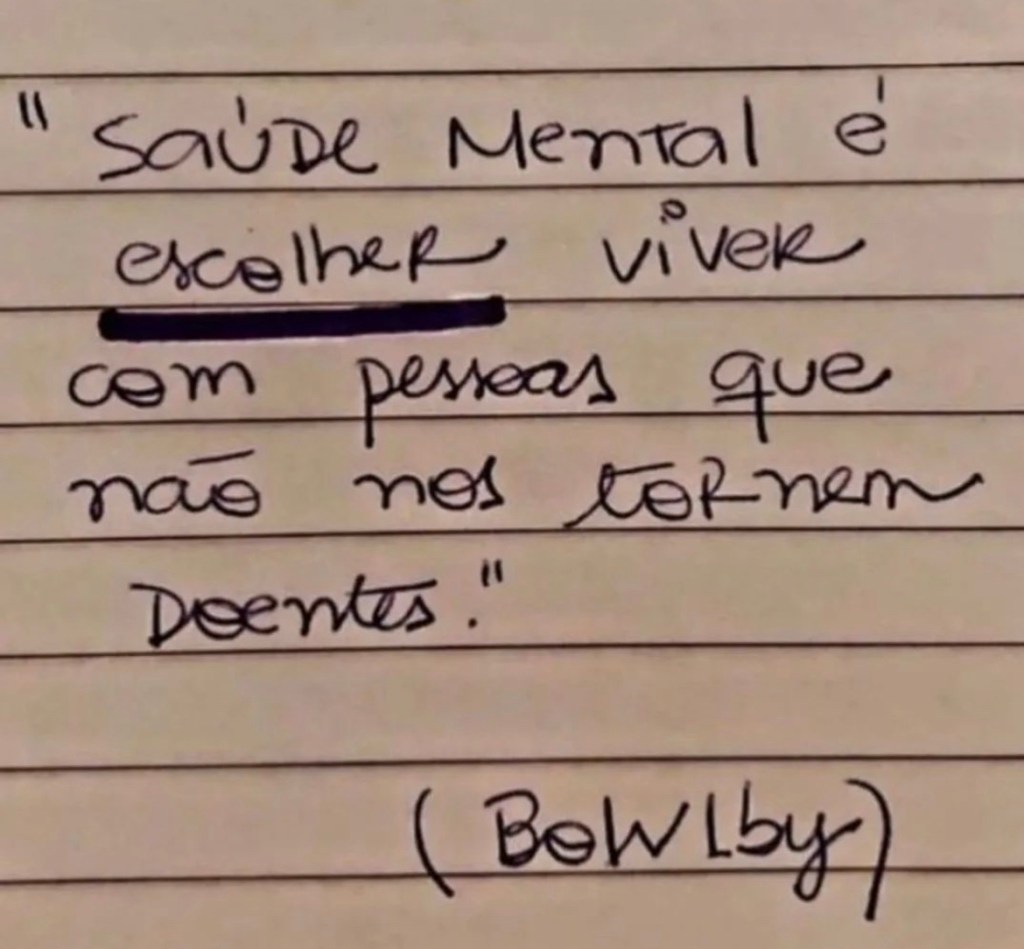 "Saúde Mental é
escolher viver
com pessoas que
não nos tornem
Doentes."
(Bowlby)